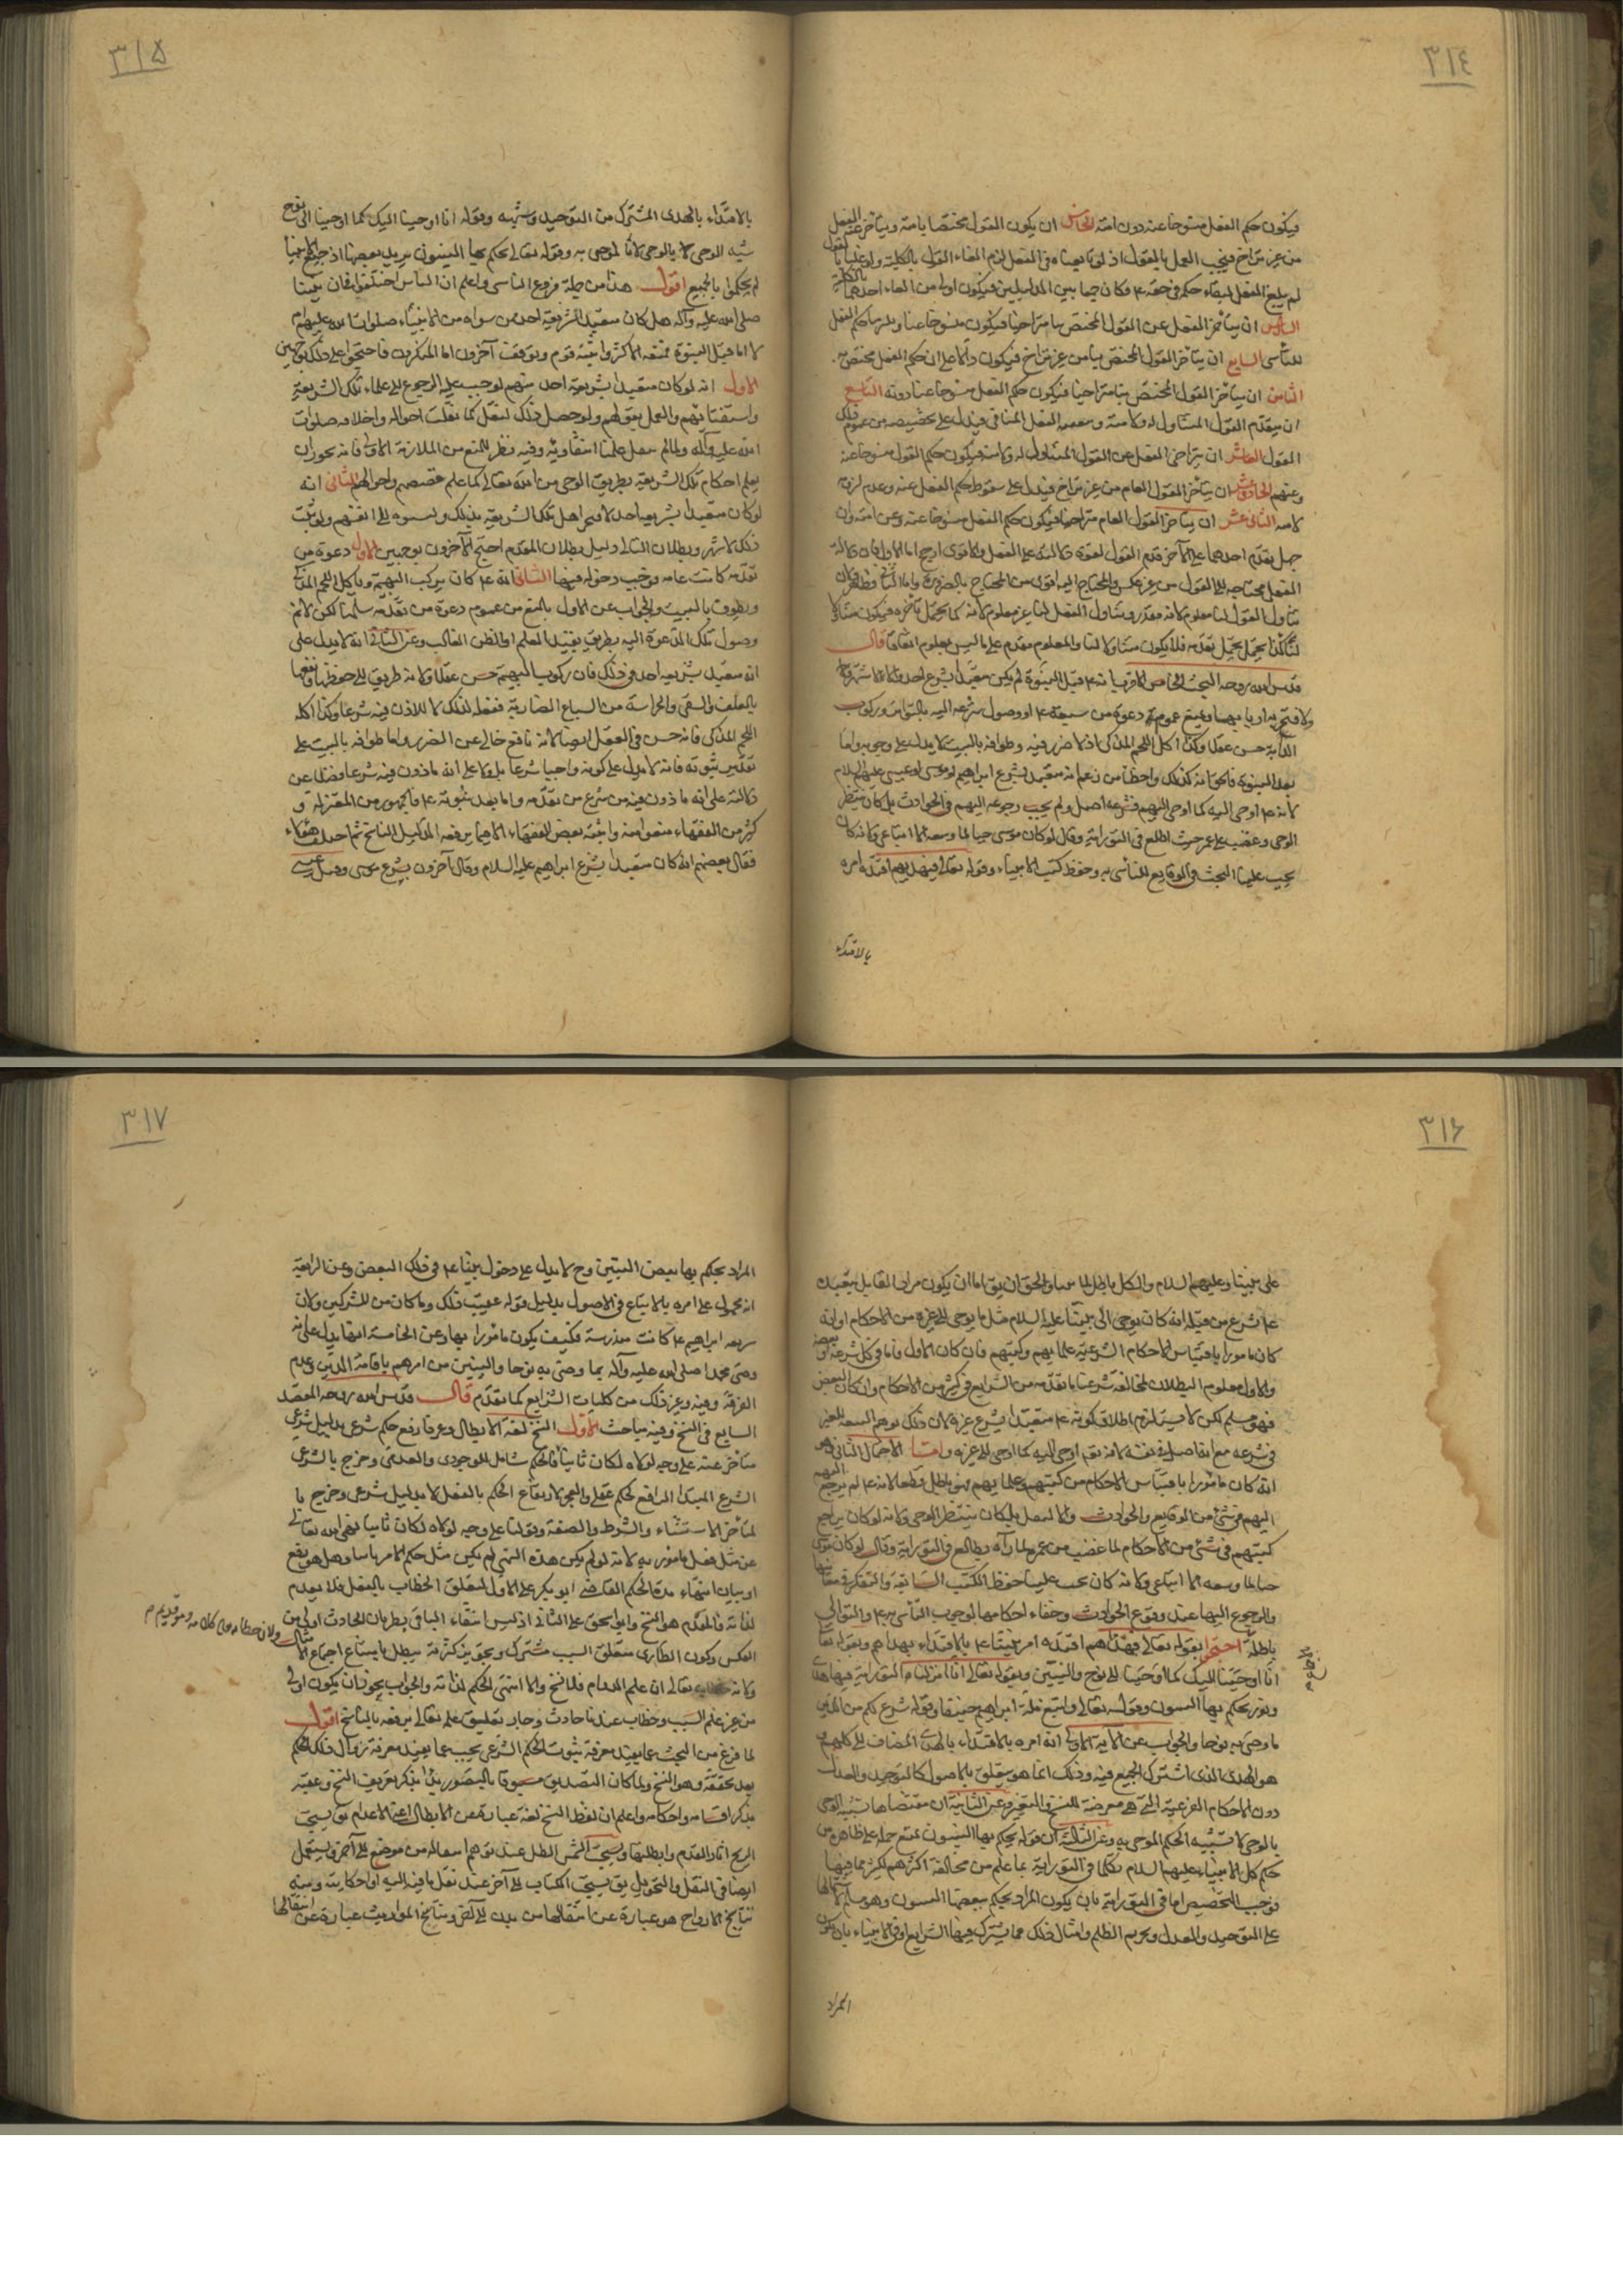 ٣١٤
فيكون حكم الفعل منسوخا عنه دون امته الخامس ان يكون القول مختصا بامته ويتاخر عنه الفعل
من غير تراخ فيجب العمل بالقول اذ لو تابعناه في الفعل لزم الغاء القول بالكلية ولو عملنا بالقول
لم يلغ الفعل لبقاء حكم في حقه ٤ فكان جمعا بين الدليلين فيكون اولى من الغاء احدهما بالكلية
السادس ان يتاخر الفعل عن القول المختص بنا متراخيا فيكون منسوخا عنا ويلزمنا حكم الفعل
للتأسي السابع ان يتاخر القول المختص بنا من غير تراخ فيكون دالا على ان حكم الفعل مختص به
الثامن ان يتاخر القول المختص بنا متراخيا فيكون حكم الفعل منسوخا عنا دونه التاسع
ان يتقدم القول المتناول له ولامته ويتعقبه الفعل المنافي فيدل على تخصيصه من عموم ذلك
القول العاشر ان يتراخى الفعل عن القول المتناول له ولامته فيكون حكم القول منسوخا عنه
وعنهم الحادي عشر ان يتاخر القول العام من غير تراخ فيدل على سقوط حكم الفعل عنه وعدم لزومه
لامته الثاني عشر ان يتاخر القول العام متراخيا فيكون حكم الفعل منسوخا عنه وعن امته وان
جهل تقدم احدهما على الآخر قدم القول لقوة دلالته على الفعل والاقوى ارجح اما الاول فان دلالة
الفعل محتاجة الى القول من غير عكس والمحتاج اليه اقوى من المحتاج بالضرورة واما الثاني فظاهر ولان
تناول القول لنا معلوم لانه مقدر وتناول الفعل لنا غير معلوم لانه كما يحتمل تأخره فيكون متناولا
لنا كذا يحتمل تقدمه فلا يكون متناولا لنا والمعلوم مقدم على ما ليس بمعلوم اتفاقا قال
قدس الله روحه البحث الخامس الاقرب انه ٤ قبل النبوة لم يكن متعبدا بشرع احد والا لاشتهر
ولافتخر به اربابها ويمنع عموم دعوة من سبقه ٤ او وصول شرعه اليه بالتواتر وركوب
الدابة حسن عقلا وكذا اكل اللحم المذكى اذ لا ضرر فيه وطوافه بالبيت لا يدل على وجوبه واما
بعد النبوة فالحق انه كذلك واخطأ من زعم انه متعبد بشرع ابراهيم او موسى او عيسى عليهم السلام
لانه ٤ اوحى اليه كما اوحى اليهم فشرعه اصل ولم يجب رجوعه اليهم في الحوادث بل كان ينتظر
الوحي وغضب على عمر حيث اطلع في التوراة وقال لو كان موسى حيا لما وسعه الا اتباعي ولانه كان
يجب علينا البحث في الوقايع للتأسي به وحفظ كتب الانبياء وقوله تعالى فبهديهم اقتده امره
بالاقتداء
٣١٥
بالاقتداء بالهدى المشترك من التوحيد وشبهه وقوله انا اوحينا اليك كما اوحينا الى نوح
شبه الوحي بالوحي لا الموحى به وقوله تعالى يحكم بها النبيون يريد بعضها اذ جميع الانبياء
لم يحكموا بالجميع اقول هذا من جملة فروع التاسي واعلم ان الناس اختلفوا في ان نبينا
صلى الله عليه وآله هل كان متعبدا بشريعة احد من سواه من الانبياء صلوات الله عليهم ام
لا اما قبل النبوة فمنعه الاكثر واثبته قوم وتوقف آخرون اما المنكرون فاحتجوا على ذلك بوجهين
الاول انه لو كان متعبدا بشريعة احد منهم لوجب عليه الرجوع الى علماء تلك الشريعة
واستفتائهم والعمل بقولهم ولو حصل ذلك لنقل كما نقلت احواله واخلاقه صلوات
الله عليه وآله ولما لم ينقل علمنا انتفاؤه وفيه نظر للمنع من الملازمة الاولى فانه يجوز ان
يعلم احكام تلك الشريعة بطريق الوحي من الله تعالى كما علم قصصهم واحوالهم الثاني انه
لو كان متعبدا بشريعة احد لافتخر اهل تلك الشريعة بذلك ونسبوه الى انفسهم ولو ثبت
ذلك لاشتهر وبطلان التالي دليل بطلان المقدم احتج الآخرون بوجهين الاول دعوة من
تقدمه كانت عامة فوجب دخوله فيها الثاني انه ٤ كان يركب البهيمة ويأكل اللحم المذكى
ويطوف بالبيت والجواب عن الاول بالمنع من عموم دعوة من تقدمه سلمنا لكن لا نم
وصول تلك الدعوة اليه بطريق يفيد العلم او الظن الغالب وعن الثاني انه لا يدل على
انه متعبد بشريعة احد في ذلك فان ركوب البهيمة حسن عقلا ولانه طريق الى حفظها ونفعها
بالعلف والسقي والحراسة من السباع الضارية ففعله لذلك لا للاذن فيه شرعا وكذا اكله
اللحم المذكى فانه حسن في العقل ايضا لانه نافع خالي عن الضرر واما طوافه بالبيت على
تقدير ثبوته فانه لا يدل على كونه واجبا شرعا بل ولا على انه ماذون فيه شرعا فضلا عن
دلالته على انه ماذون فيه من شرع من تقدمه واما بعد نبوته ٤ فالجمهور من المعتزلة و
كثير من الفقهاء منعوا منه واثبته بعض الفقهاء الا فيما يرفعه الدليل الناسخ ثم اختلف هؤلاء
فقال بعضهم انه كان متعبدا بشرع ابراهيم عليه السلام وقال آخرون بشرع موسى وقيل عيسى
٣١٦
على نبينا وعليهم السلام والكل باطل والحق ان يق اما ان يكون مراد القايل بتعبده
٤ بشرع من قبله انه كان يوحى الى نبينا عليه السلام مثل ما يوحى الى غيره من الاحكام او انه
كان مامورا باقتباس الاحكام الشرعية من علمائهم وكتبهم فان كان الاول فاما في كل شرعه او بعضه
والاول معلوم البطلان لمخالفة شرعنا ما تقدمه من الشرايع في كثير من الاحكام وان كان البعض
فهو مسلم لكن لا يستلزم اطلاق كونه ٤ متعبدا بشرع غيره لان ذلك يوهم التبعية للغير
في شرعه مع انه اصل في نفسه لانه نعم اوحى اليه كما اوحى الى غيره واما الاحتمال الثاني وهو
انه كان مامورا باقتباس الاحكام من كتبهم وعلمائهم فهو باطل قطعا لانه ٤ لم يرجع
اليهم في شئ من الوقايع والحوادث والا لنقل بل كان ينتظر الوحي ولانه لو كان يراجع
كتبهم في شئ من الاحكام لما غضب من عمر لما رآه يطالع في التوراة وقال لو كان موسى
حيا لما وسعه الا اتباعي ولانه كان يجب علينا حفظ الكتب السابقة والتفكر في معانيها
والرجوع اليها عند وقوع الحوادث وخفاء احكامها لوجوب التأسي به ٤ والتوالي
باطلة احتجوا بقوله تعالى فبهداهم اقتده امر نبينا ٤ بالاقتداء بهداهم وبقوله تعا
انا اوحينا اليك كما اوحينا الى نوح والنبيين وبقوله تعالى انا انزلنا التوراة فيها هدى
ونور يحكم بها النبيون وقوله تعالى واتبع ملة ابراهيم حنيفا وقوله شرع لكم من الدين
ما وصى به نوحا والجواب عن الآية الاولى انه امره بالاقتداء بالهدى المضاف الى كلهم و
هو الهدى الذي اشترك الجميع فيه وذلك انما هو يتعلق بالاصول كالتوحيد والعدل
دون الاحكام الفرعية التي هي معرضة للنسخ والتغير وعن الثانية ان مقتضاها تشبيه الوحي
بالوحي لا تشبيه الحكم الموحى به وعن الثالثة ان قوله يحكم بها النبيون يمتنع حمله على ظاهره من
حكم كل الانبياء عليهم السلام بكل ما في التوراة بما علم من مخالفة اكثرهم لكثير مما فيها
فوجب التخصيص اما في التوراة بان يكون المراد يحكم ببعضها النبيون وهو مسلم
على التوحيد والعدل وتحريم الظلم وامثال ذلك مما يشترك فيها الشرايع او في الانبياء بان يكون
المراد
٣١٧
المراد يحكم بها بعض النبيين وح لا يدل على دخول نبينا ٤ في ذلك البعض وعن الرابعة
انه محمول على امره بالاتباع في الاصول بدليل قوله عقيب ذلك وما كان من المشركين ولان
شريعة ابراهيم ٤ كانت مندرسة فكيف يكون مامورا بها وعن الخامسة انها يدل على انه
وصى محمدا صلى الله عليه وآله بما وصى به نوحا والنبيين من امرهم باقامة الدين وعدم
الفرقة وفيه وغير ذلك من كليات الشرايع كما تقدم قال قدس الله روحه المقصد
السابع في النسخ وفيه مباحث الاول النسخ لغة الابطال وعرفا رفع حكم شرعي بدليل شرعي
متاخر عنه على وجه لولاه لكان ثابتا فالحكم شامل للوجودي والعدمي وخرج بالشرعي
الشرع المبتدا الرافع لحكم عقلي والعجز لارتفاع الحكم بالعقل لا بدليل شرعي وخرج با
لمتأخر الاستثناء والشرط والصفة وقولنا على وجه لولاه لكان ثابتا نهى الله تعالى
عن مثل فعل مامور به لانه لو لم يكن هذا النهي لم يكن مثل حكم الامر ثابتا وهل هو رفع
او بيان انتهاء مدة الحكم القاضي ابو بكر على الاول لتعلق الخطاب بالفعل فلا يعدم
لذاته فالمعدم هو النسخ وابو اسحق على الثاني اذ ليس انتفاء الباقي بطريان الحادث اولى من
العكس وكون الطارئ متعلق السبب مشترك وتجويز كثرته يبطل بامتناع اجتماع الامثال
ولانه تعالى ان علم الدوام فلا نسخ والا انتهى الحكم لذاته والجواب يجوز ان يكون اولى
من غير علم السبب وخطاب عندنا حادث وجاز تعليق علمه تعالى برفعه بالناسخ اقول
لما فرغ من البحث عما يفيد معرفة ثبوت الحكم الشرعي بحث عما يفيد معرفة زوال ذلك الحكم
بعد تحققه وهو النسخ ولما كان التصديق مسبوقا بالتصور بدا بذكر تعريف النسخ وعقبه
بذكر اقسامه واحكامه واعلم ان لفظ النسخ لغة عبارة عن الابطال اعني الاعدام يق نسخت
الريح اثار القدم وابطلتها ونسخت الشمس الظل عند توهم انتقاله من موضع الى آخر ويستعمل
ايضا في النقل والتحويل يق نسخت الكتاب الى آخر عند نقل ما فيه اليه او حكايته ومنه
تناسخ الارواح هو عبارة عن انتقالها من بدن الى آخر وتناسخ المواريث عبارة عن انتقالها